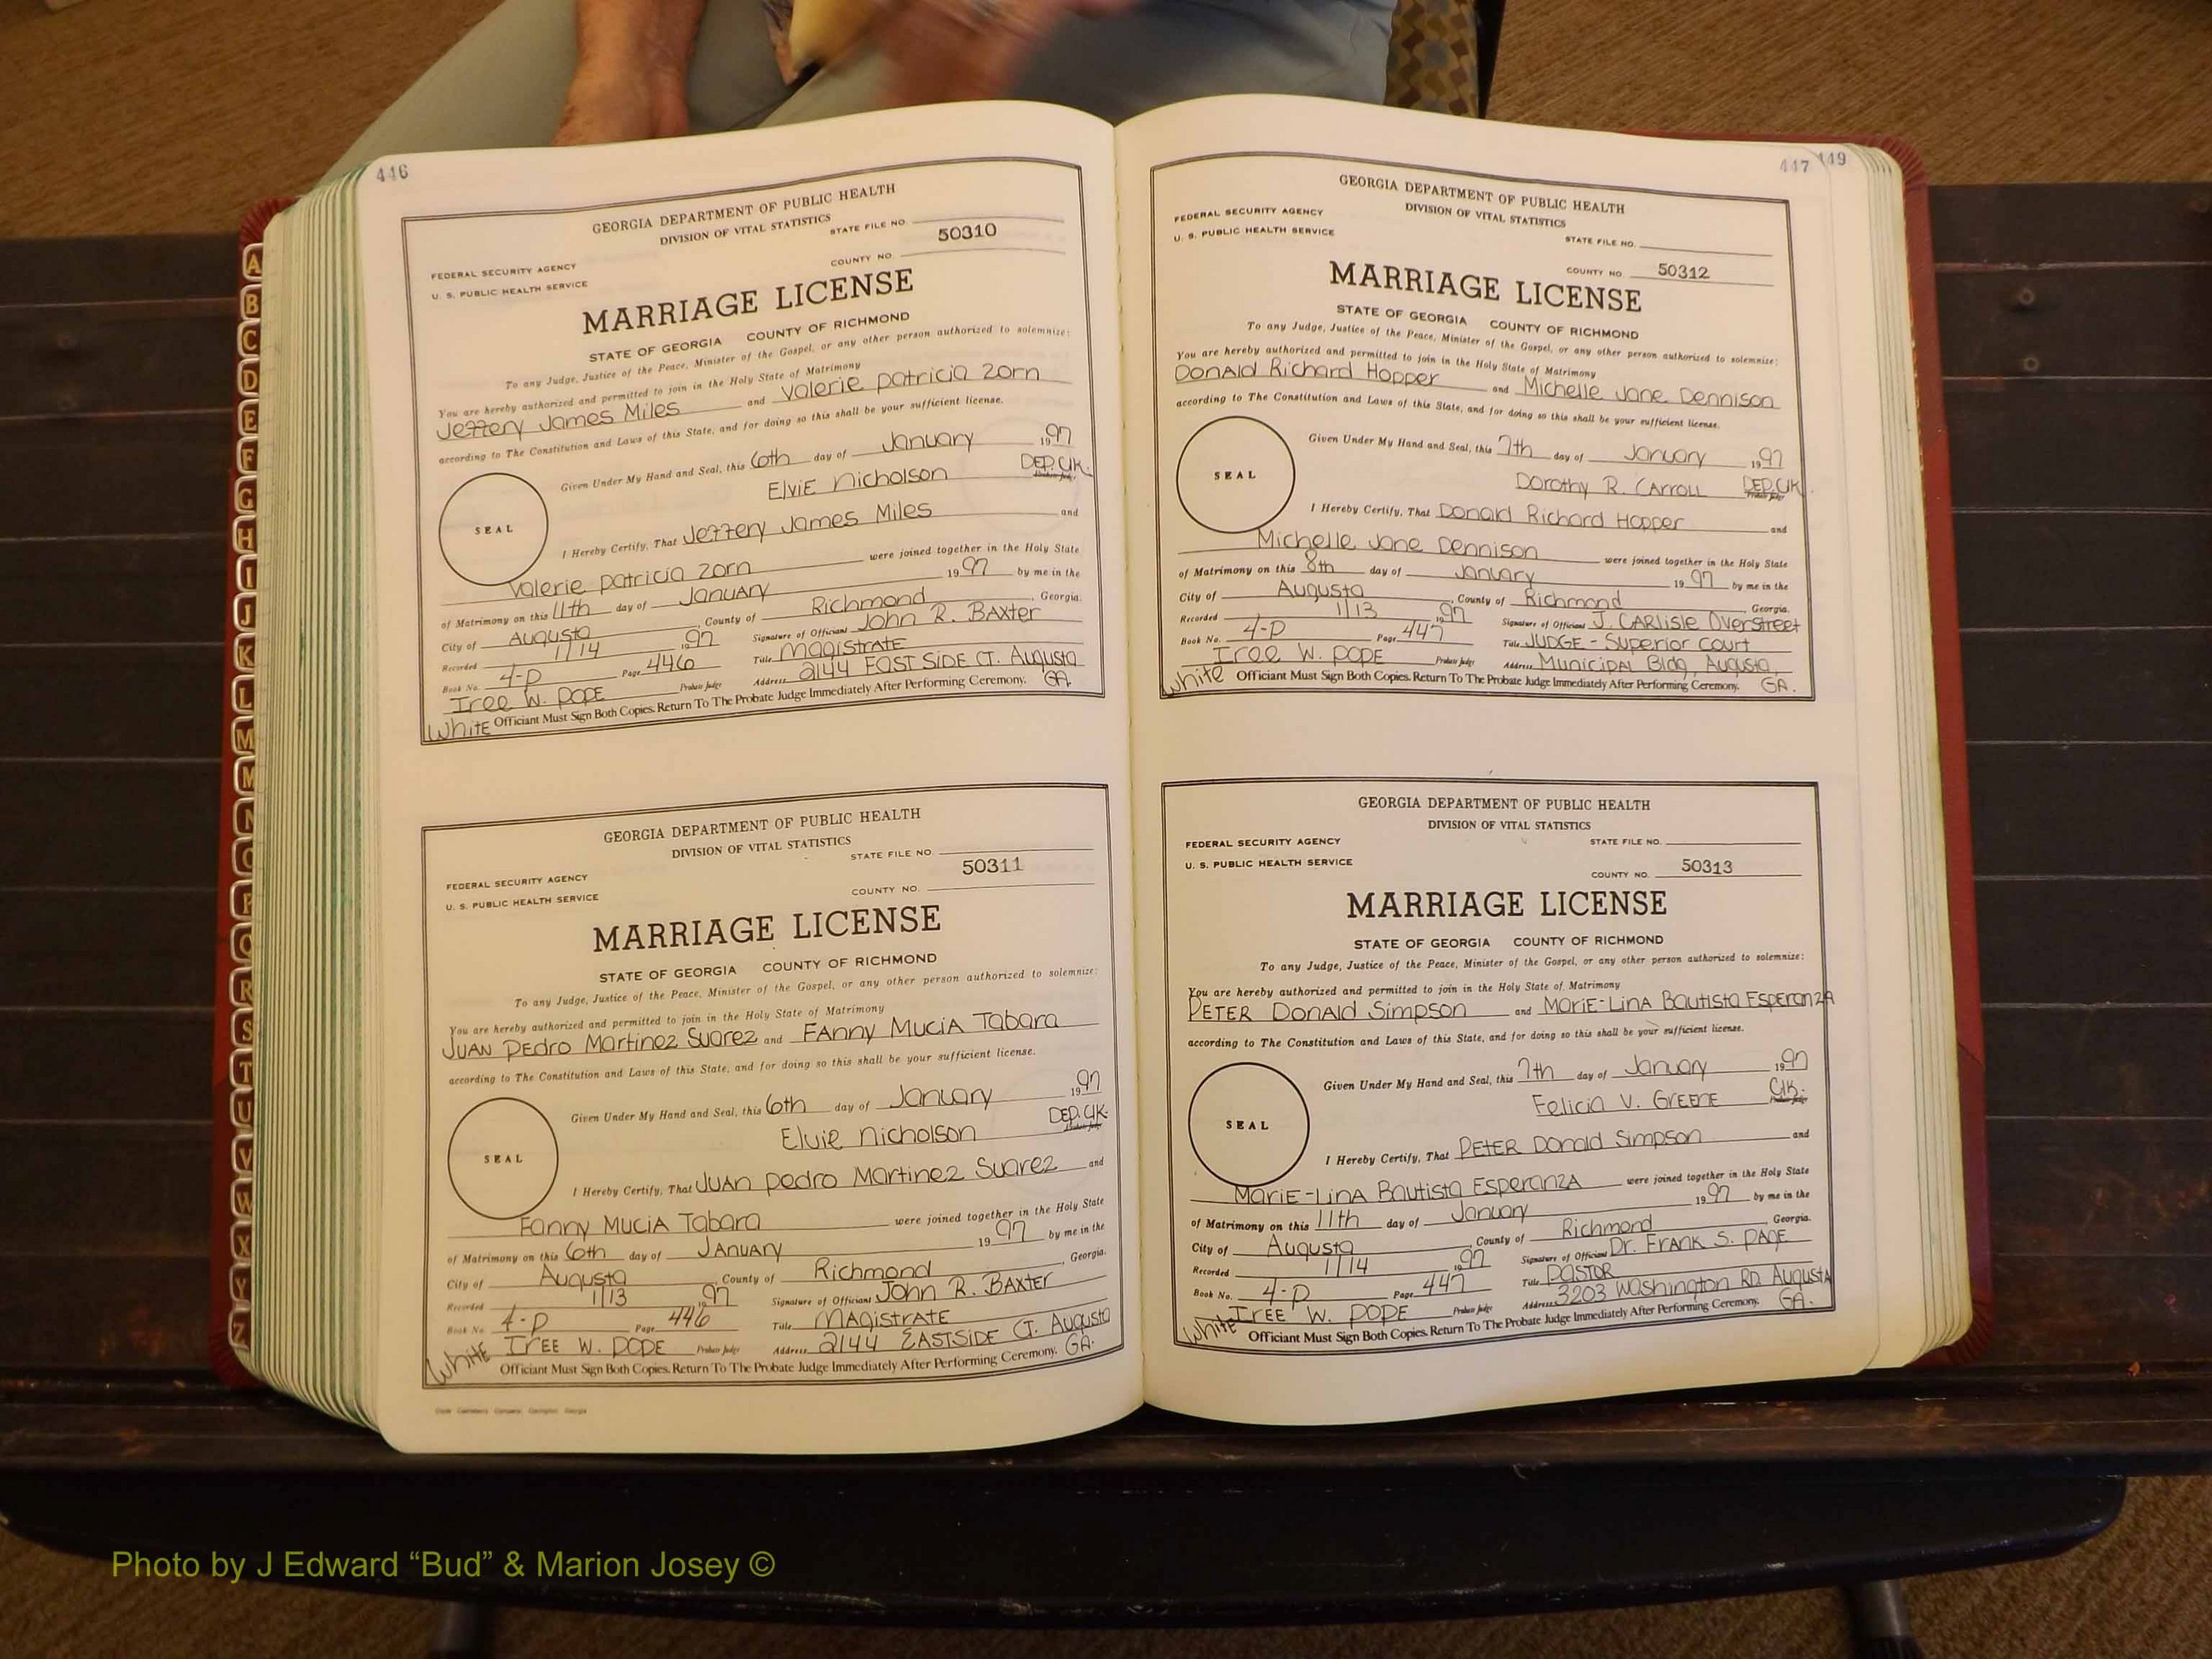 446
GEORGIA DEPARTMENT OF PUBLIC HEALTH
DIVISION OF VITAL STATISTICS
STATE FILE NO.
50310
FEDERAL SECURITY AGENCY
COUNTY NO.
U. S. PUBLIC HEALTH SERVICE
MARRIAGE LICENSE
STATE OF GEORGIA COUNTY OF RICHMOND
To any Judge, Justice of the Peace, Minister of the Gospel, or any other person authorized to solemnize:
You are hereby authorized and permitted to join in the Holy State of Matrimony
Jeffery James Miles and Valerie Patricia Zorn
according to The Constitution and Laws of this State, and for doing so this shall be your sufficient license.
Given Under My Hand and Seal, this 6th day of January 1997
Elvie Nicholson DEP. Clk.
Probate Judge
SEAL
I Hereby Certify, That Jeffery James Miles and
Valerie Patricia Zorn were joined together in the Holy State
of Matrimony on this 11th day of January 1997 by me in the
City of Augusta County of Richmond, Georgia.
Recorded 1/14 1997 Signature of Official John R. Baxter
Book No. 4-P Page 446 Title Magistrate
Iree W. Pope Probate Judge Address 2144 East Side Ct. Augusta
White Officiant Must Sign Both Copies. Return To The Probate Judge Immediately After Performing Ceremony. GA.
GEORGIA DEPARTMENT OF PUBLIC HEALTH
DIVISION OF VITAL STATISTICS
STATE FILE NO.
50311
FEDERAL SECURITY AGENCY
COUNTY NO.
U. S. PUBLIC HEALTH SERVICE
MARRIAGE LICENSE
STATE OF GEORGIA COUNTY OF RICHMOND
To any Judge, Justice of the Peace, Minister of the Gospel, or any other person authorized to solemnize:
You are hereby authorized and permitted to join in the Holy State of Matrimony
Juan Pedro Martinez Suarez and Fanny Mucia Tabara
according to The Constitution and Laws of this State, and for doing so this shall be your sufficient license.
Given Under My Hand and Seal, this 6th day of January 1997
Elvie Nicholson DEP. Clk.
Probate Judge
SEAL
I Hereby Certify, That Juan Pedro Martinez Suarez and
Fanny Mucia Tabara were joined together in the Holy State
of Matrimony on this 6th day of January 1997 by me in the
City of Augusta, County of Richmond, Georgia.
Recorded 1/13 1997 Signature of Official John R. Baxter
Book No. 4-P Page 446 Title Magistrate
Iree W. Pope Probate Judge Address 2144 Eastside Ct. Augusta
White Officiant Must Sign Both Copies. Return To The Probate Judge Immediately After Performing Ceremony. GA.
447 449
GEORGIA DEPARTMENT OF PUBLIC HEALTH
DIVISION OF VITAL STATISTICS
FEDERAL SECURITY AGENCY
U. S. PUBLIC HEALTH SERVICE
STATE FILE NO.
COUNTY NO. 50312
MARRIAGE LICENSE
STATE OF GEORGIA COUNTY OF RICHMOND
To any Judge, Justice of the Peace, Minister of the Gospel, or any other person authorized to solemnize:
You are hereby authorized and permitted to join in the Holy State of Matrimony
Donald Richard Hopper and Michelle Jane Dennison
according to The Constitution and Laws of this State, and for doing so this shall be your sufficient license.
Given Under My Hand and Seal, this 7th day of January 1997
Dorothy R. Carroll DEP. Clk
Probate Judge
SEAL
I Hereby Certify, That Donald Richard Hopper and
Michelle Jane Dennison were joined together in the Holy State
of Matrimony on this 8th day of January 1997 by me in the
City of Augusta, County of Richmond, Georgia.
Recorded 1/13 1997 Signature of Official J. Carlisle Overstreet
Book No. 4-P Page 447 Title Judge - Superior Court
Iree W. Pope Probate Judge Address Municipal Bldg, Augusta,
White Officiant Must Sign Both Copies. Return To The Probate Judge Immediately After Performing Ceremony. GA.
GEORGIA DEPARTMENT OF PUBLIC HEALTH
DIVISION OF VITAL STATISTICS
FEDERAL SECURITY AGENCY
STATE FILE NO.
U. S. PUBLIC HEALTH SERVICE
COUNTY NO. 50313
MARRIAGE LICENSE
STATE OF GEORGIA COUNTY OF RICHMOND
To any Judge, Justice of the Peace, Minister of the Gospel, or any other person authorized to solemnize:
You are hereby authorized and permitted to join in the Holy State of Matrimony
Peter Donald Simpson and Marie-Lina Bautista Esperanza
according to The Constitution and Laws of this State, and for doing so this shall be your sufficient license.
Given Under My Hand and Seal, this 7th day of January 1997
Felicia V. Greene Clk.
Probate Judge
SEAL
I Hereby Certify, That Peter Donald Simpson and
Marie-Lina Bautista Esperanza were joined together in the Holy State
of Matrimony on this 11th day of January 1997 by me in the
City of Augusta, County of Richmond, Georgia.
Recorded 1/14 1997 Signature of Official Dr. Frank S. Page
Book No. 4-P Page 447 Title Pastor
Iree W. Pope Probate Judge Address 3203 Washington Rd. Augusta
White Officiant Must Sign Both Copies. Return To The Probate Judge Immediately After Performing Ceremony. GA.
A
B
C
D
E
F
G
H
I
J
K
L
M
M
N
O
P
Q
R
S
T
U
V
W
X
Y
Z
Photo by J Edward “Bud” & Marion Josey ©